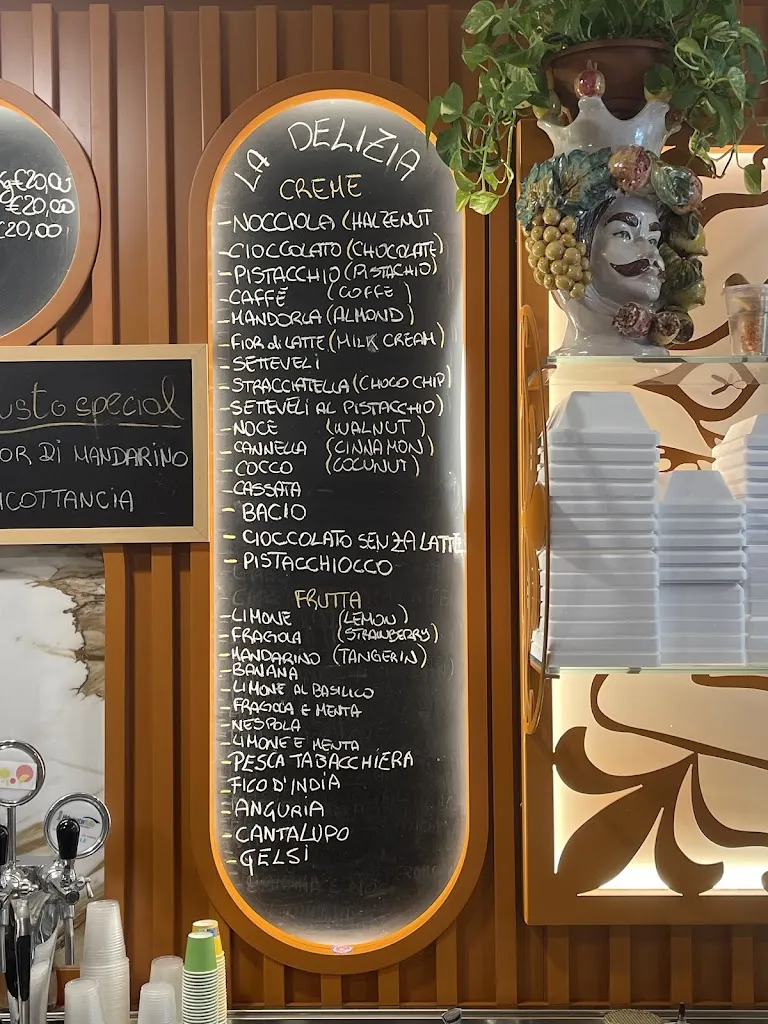 LA DELIZIA
CREME
- NOCCIOLA (HALZENUT
- CIOCCOLATO (CHOCOLATE)
- PISTACCHIO (PISTACHIO)
- CAFFÈ (COFFE)
- MANDORLA (ALMOND)
- FIOR di LATTE (MILK CREAM)
- SETTEVELI
- STRACCIATELLA (CHOCO CHIP)
- SETTEVELI AL PISTACCHIO)
- NOCE (WALNUT)
- CANNELLA (CINNAMON)
- COCCO (COCUNUT)
- CASSATA
- BACIO
- CIOCCOLATO SENZA LATTE
- PISTACCHIOCCO
FRUTTA
- LIMONE (LEMON)
- FRAGOLA (STRAWBERRY)
- MANDARINO (TANGERIN)
- BANANA
- LIMONE AL BASILICO
- FRAGOLA E MENTA
- NESPOLA
- LIMONE E MENTA
- PESCA TABACCHIERA
- FICO D'INDIA
- ANGURIA
- CANTALUPO
- GELSI
Kg €20,00
€20,00
€20,00
usto special
OR DI MANDARINO
ICOTTANCIA